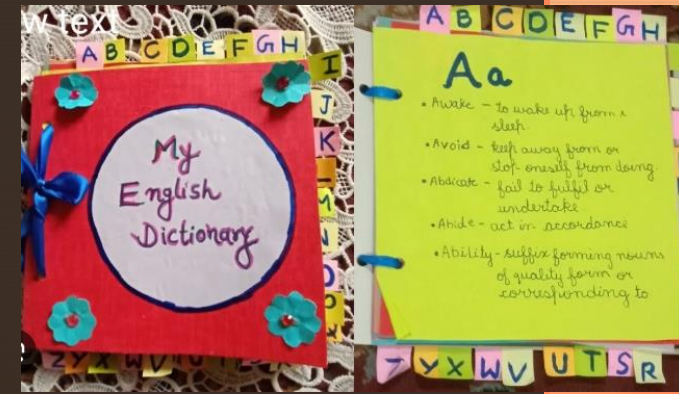 w text
A B C D E F G H
I
J
K
M
N
O
My
English
Dictionary
Z Y X W V U
A B C D E F G H
Aa
• Awake - to wake up from
sleep.
• Avoid - keep away from or
stop oneself from doing
• Abdicate - fail to fulfil or
undertake.
• Abide - act in accordance
• Ability - suffix forming nouns
of quality form or
corresponding to
Y X W V U T S R